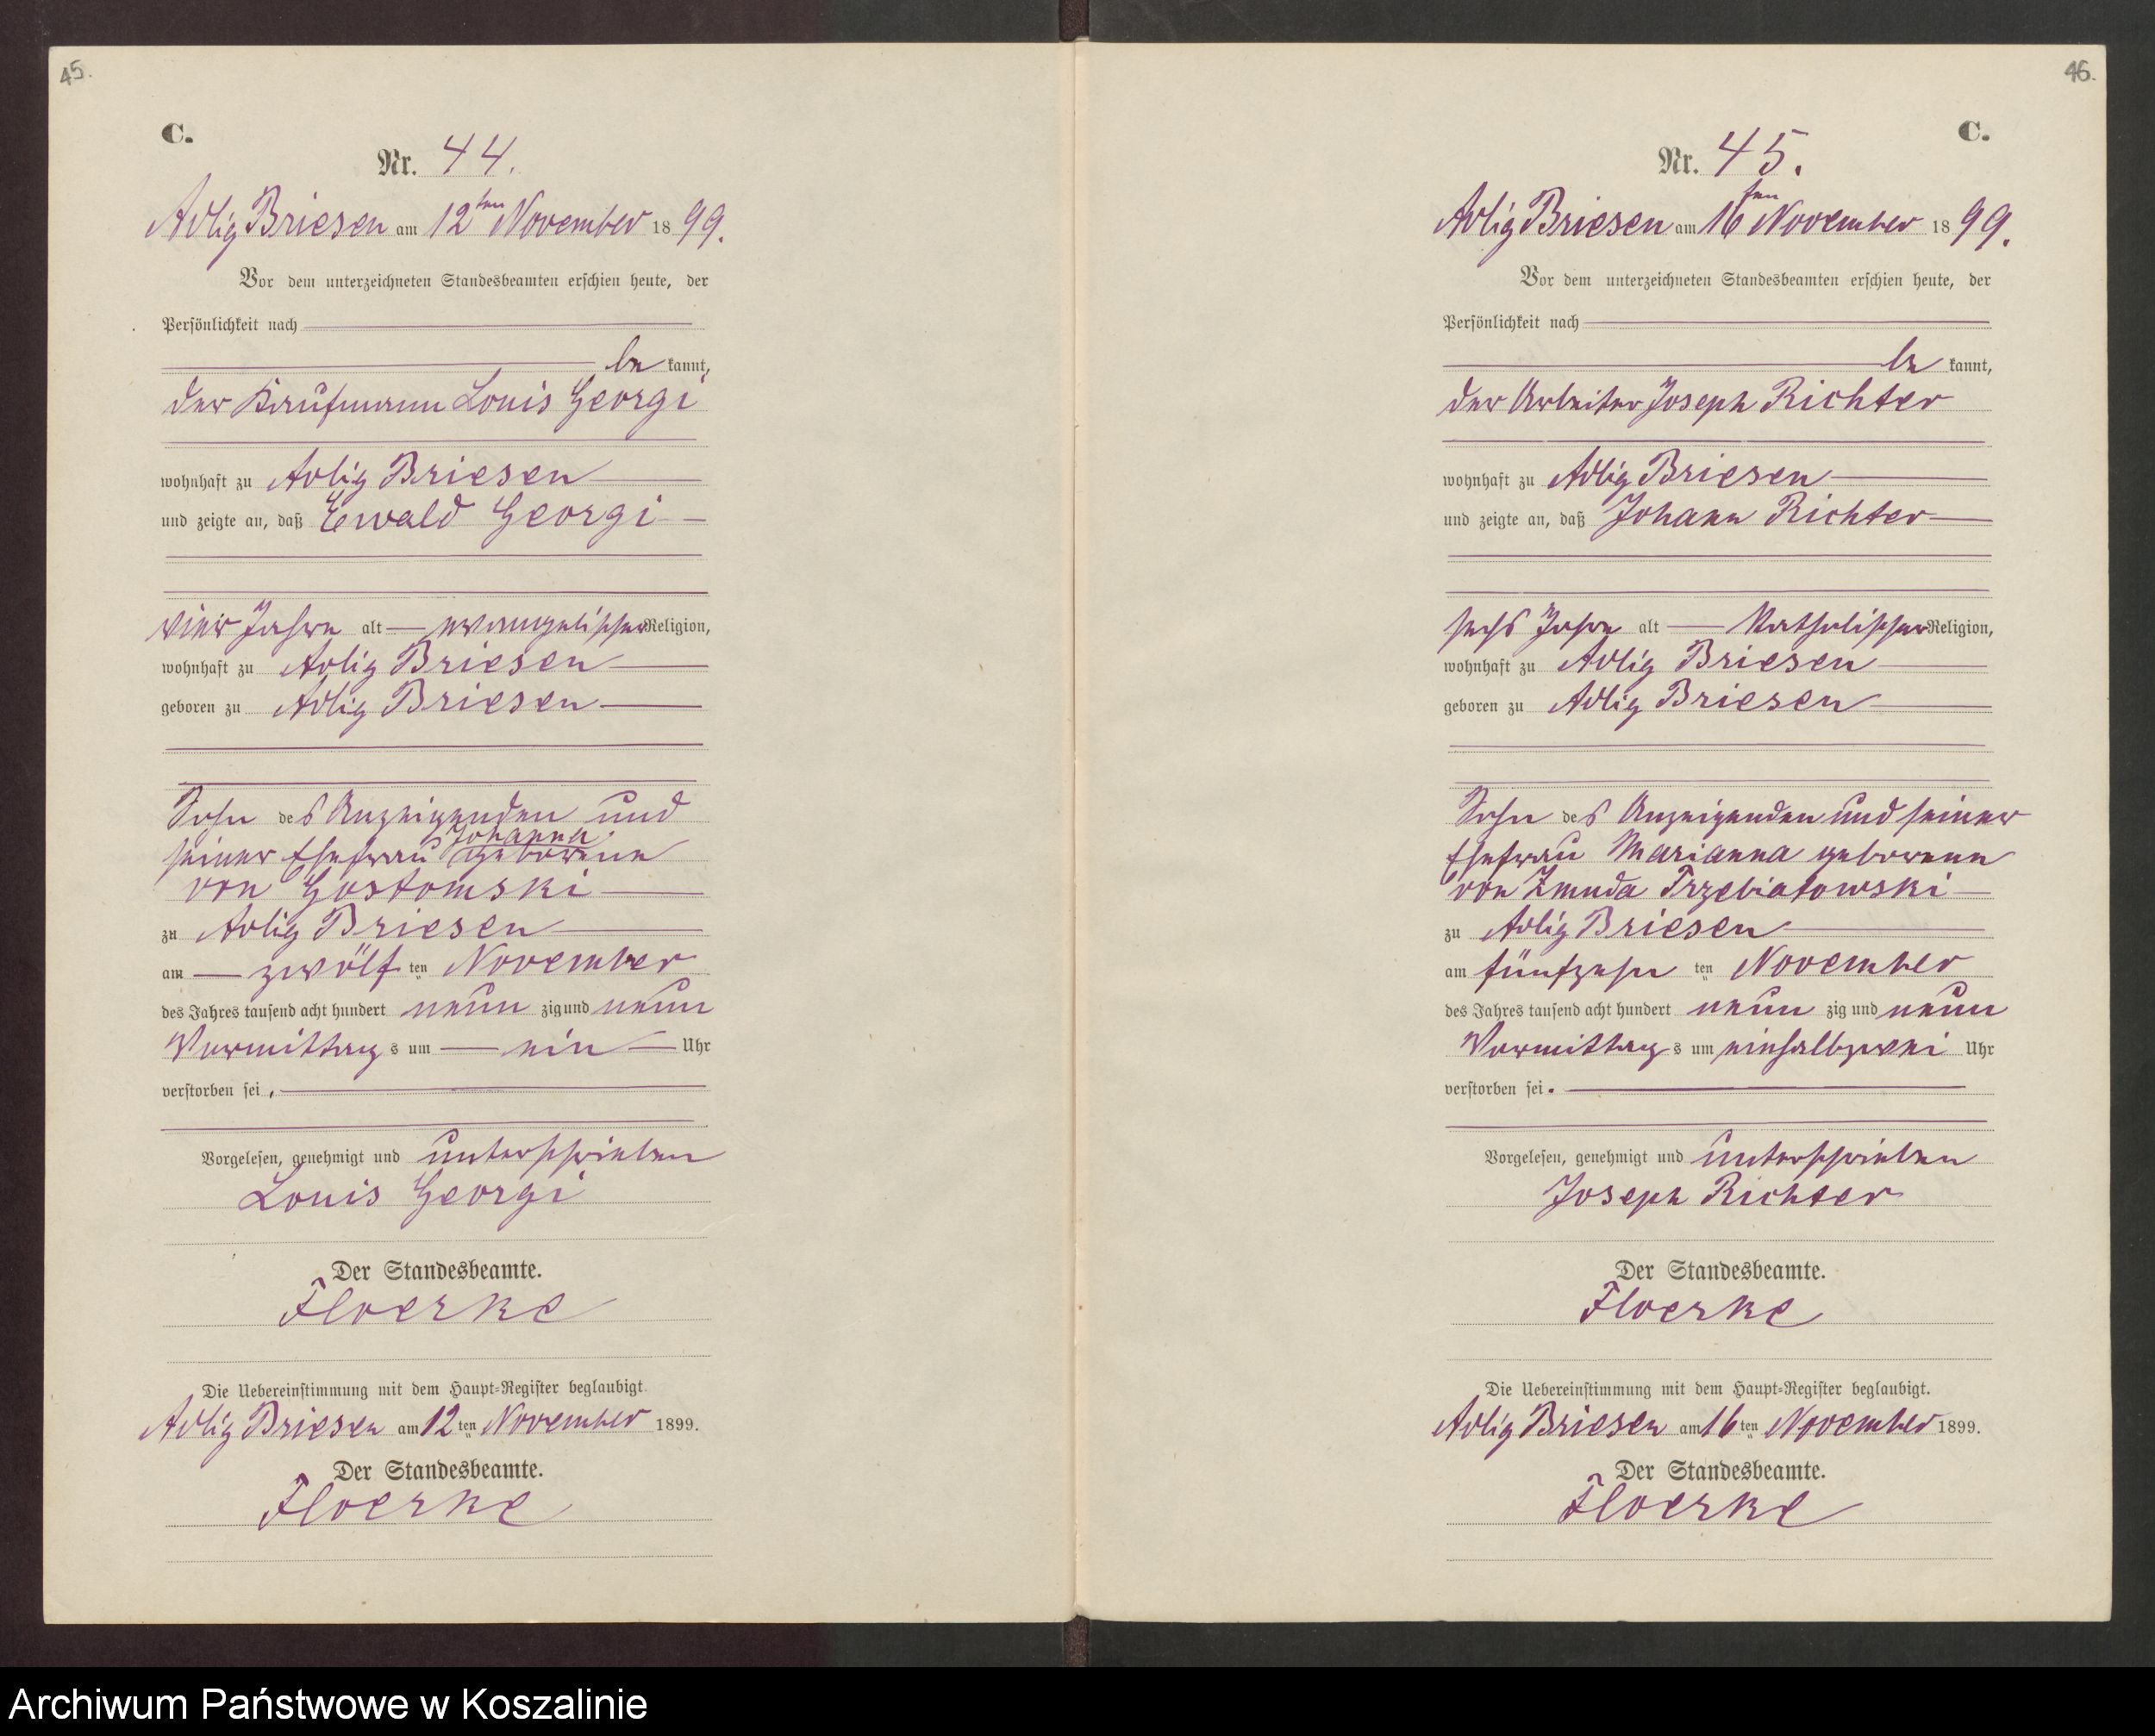 45.
C.
Nr. 44.
Adlig Briesen am 12ten November 1899.
Vor dem unterzeichneten Standesbeamten erschien heute, der
Persönlichkeit nach
be kannt,
der Kaufmann Louis Georgi
wohnhaft zu Adlig Briesen
und zeigte an, daß Ewald Georgi
vier Jahre alt evangelischer Religion,
wohnhaft zu Adlig Briesen
geboren zu Adlig Briesen
Sohn des Anzeigenden und
Johanna
seiner Ehefrau geborene
von Gostomski
zu Adlig Briesen
am zwölf ten November
des Jahres tausend acht hundert neun zig und neun
Vormittags um ein Uhr
verstorben sei.
Vorgelesen, genehmigt und unterschrieben
Louis Georgi
Der Standesbeamte.
Floerke
Die Uebereinstimmung mit dem Haupt-Register beglaubigt.
Adlig Briesen am 12ten November 1899.
Der Standesbeamte.
Floerke
46.
C.
Nr. 45.
Adlig Briesen am 16ten November 1899.
Vor dem unterzeichneten Standesbeamten erschien heute, der
Persönlichkeit nach
be kannt,
der Arbeiter Joseph Richter
wohnhaft zu Adlig Briesen
und zeigte an, daß Johann Richter
sechs Jahre alt Katholischer Religion,
wohnhaft zu Adlig Briesen
geboren zu Adlig Briesen
Sohn des Anzeigenden und seiner
Ehefrau Marianna geborenen
von Zmuda Trzebiatowski
zu Adlig Briesen
am fünfzehn ten November
des Jahres tausend acht hundert neun zig und neun
Vormittags um einhalbzwei Uhr
verstorben sei.
Vorgelesen, genehmigt und unterschrieben
Joseph Richter
Der Standesbeamte.
Floerke
Die Uebereinstimmung mit dem Haupt-Register beglaubigt.
Adlig Briesen am 16ten November 1899.
Der Standesbeamte.
Floerke
Archiwum Państwowe w Koszalinie